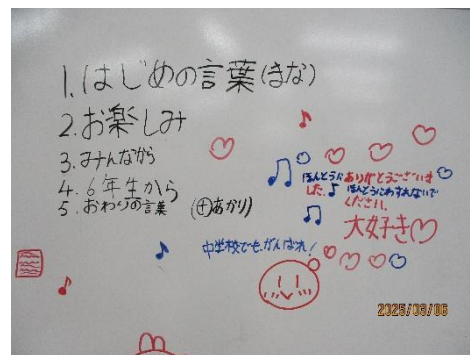 1.はじめの言葉(きな)
2.お楽しみ
3.みんなから
4.6年生から
5.おわりの言葉 (あかり)
ほんとうにありがとうございま
した。ほんとうにわすれないで
ください。
大好き
中学校でもがんばれ!
2025/03/06